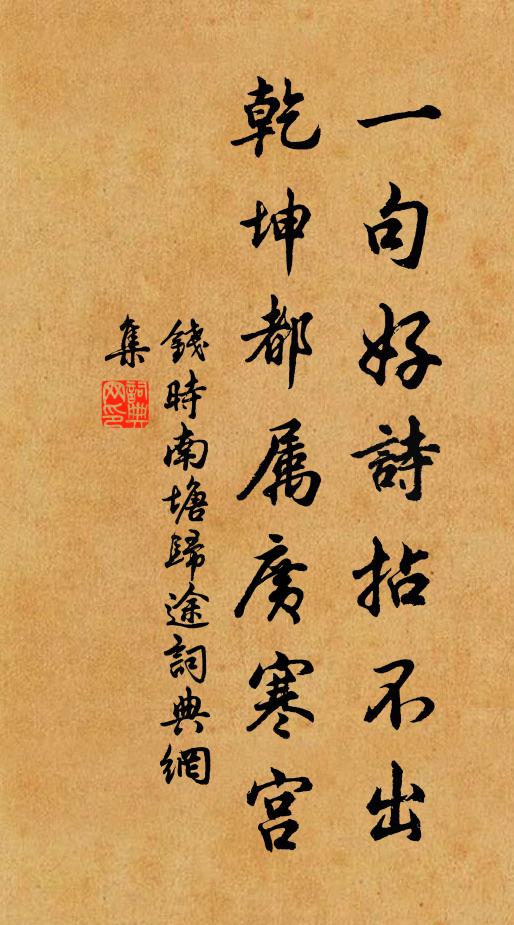 一句好詩拈不出
乾坤都属廣寒宫
錢時南塘歸途詞典網
集
詞典网印